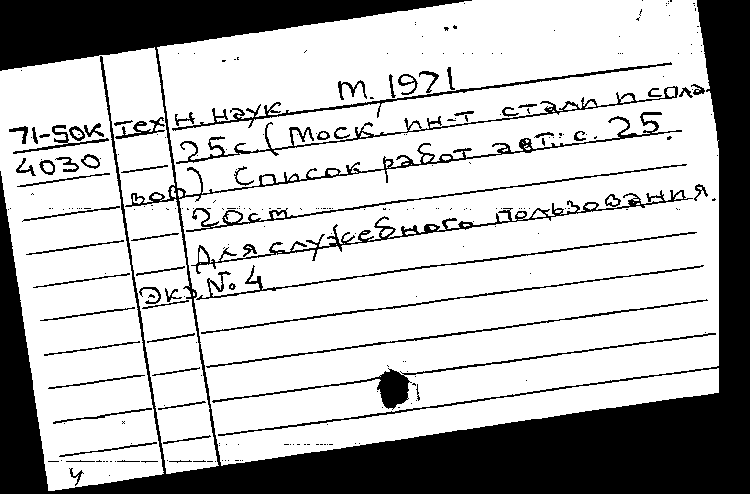 71-50К
4030
тех н. наук. М. 1971
25 с. (Моск. ин-т стали и спла-
вов). Список работ авт.: с. 25.
20 см.
Для служебного пользования.
Экз. № 4.